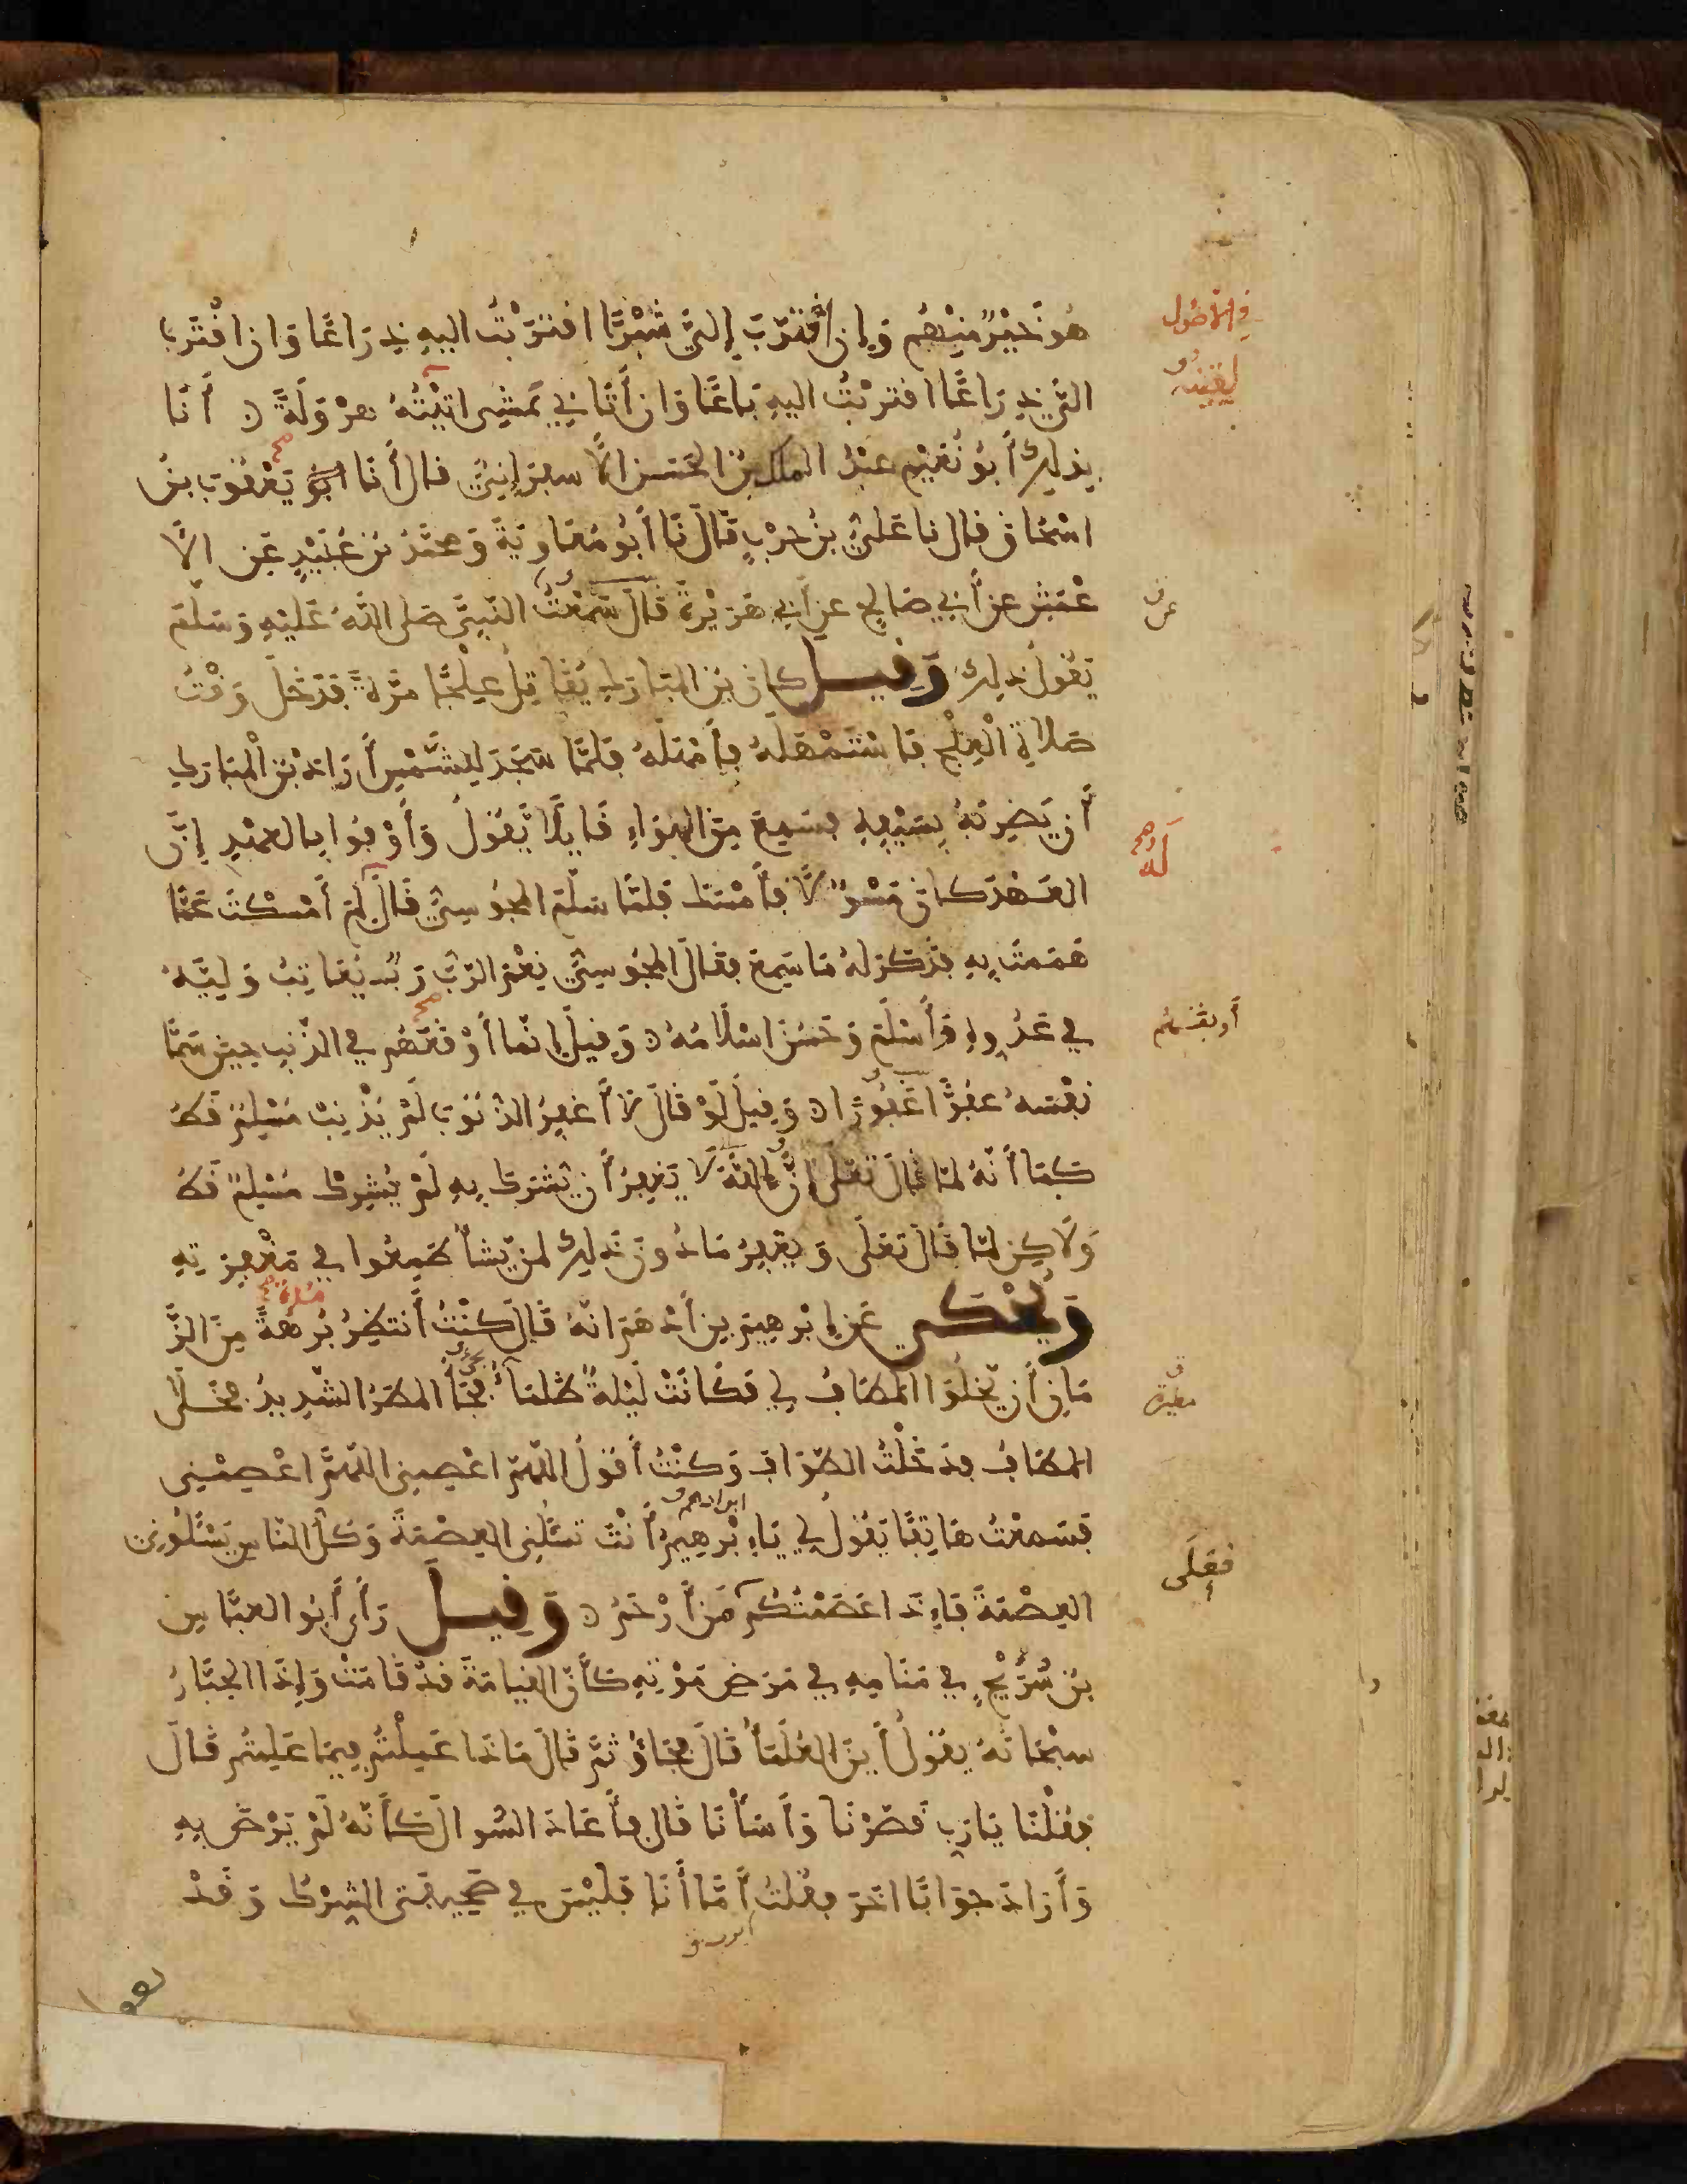 هُوَ خَيْرٌ مِّنْهُم وَإِنِ اقْتَرَبَ إِلَيَّ شِبْرًا اقتَرَبْتُ اليهِ ذِرَاعًا وَانِ اقْتَرَبَ
في الأصول
إِلَيَّ ذِرَاعًا اقتربْتُ اليهِ بَاعًا وَان أَتَانِي يَمْشِى اتَيْتُهُ هَرْوَلَةً أَنَا
بِذلِكَ أَبُو نُعَيْمٍ عَبْدُ الملك بْنُ الحَسَنِ الأَسفرَاِينِيُّ قال أَنَا أَبُو يَعْقُوبَ بنُ
اسْحَاقَ قال نا عَلِيُّ بنُ حَرْبٍ قَالَ نَا أَبُو مُعَاوِيَةَ وَمحمَّدُ بنُ عُبَيْدٍ عَنِ الأَ
عْمَشِ عن أَبِي صَالحٍ عن أَبِي هُرَيْرَةَ قَالَ سَمِعْتُ النَّبِيَّ صَلى اللَّهُ عَلَيْهِ وَسَلَّمَ
يَقُولُ ذلِكَ وَقِيلَ كَانَ بْنُ المُبَارَكِ يُقَاتِلُ عِلْجًا مَرَّةً فَدَخَلَ وَقْتُ
صَلَاةِ الْعِلْجِ فَاسْتَمْهَلَهُ فَأَمْهَلَهُ فَلَمَّا سَجَدَ لِلشَّمْسِ أَرَادَ بْنُ الْمُبَارَكِ
أَن يَضْرِبَهُ بِسَيْفِهِ فسَمِعَ مِنَ الهَوَاءِ قَايِلًا يَّقُولُ وَأَوْفُوا بالعهْدِ إِنَّ
لَهُ صح
العَهْدَ كَانَ مَسْؤُلًا فَأَمْسَكَ فَلَمَّا سَلَّمَ المجُوسِيُّ قَالَ لِمَ أَمْسَكْتَ عَمَّا
هَمَمْتَ بِهِ فَذَكَرَ لَهُ مَا سَمِعَ فقَالَ المجُوسِيُّ نِعْمَ الرَّبُّ رَبٌّ يُعَاتِبُ وَلِيَّهُ
فِي عَدُوِّهِ فَأَسْلَمَ وَحَسُنَ اسْلَامُهُ وَقِيلَ إِنَّمَا أَوْقَعَهُم فِي الذَّنبِ حِينَ سَمَّا
أو يقسم
نَفْسَهُ عَفُوًّا غَفُورًا وَقِيلَ لَوْ قَالَ لَا أَغْفِرُ الذُّنُوبَ لَمْ يُذْنِبْ مُسْلِمٌ قَطُّ
كَمَا أَنَّهُ لَمَّا قَالَ تَعَلَى إِنَّ اللَّهَ لَا يَغْفِرُ أَن يُشْرَكَ بِهِ لَمْ يُشْرِكْ مُسْلِمٌ قَطُّ
وَلَاكِن لَمَّا قَالَ تَعَلَى وَيَغْفِرُ مَا دُونَ ذَلِكَ لِمَن يَّشَأُ طَمِعُوا فِي مَغْفِرَتِهِ
وَيُحْكَى عَنِ إِبْرَهِيمَ بنِ أَدْهَمَ انَّهُ قَالَ كُنْتُ أَنتَظِرُ بُرْهَةً مِنَ الزَّ
مُدَّة صح
مَانِ أَن يَّخْلُوَا المَطَافُ لِي فَكَانَتْ لَيْلَةٌ ظَلْمَاءُ فجَا المَطَرُ الشَّدِيدُ فخَلَا
المَطَافُ فدَخَلْتُ الطَّوَافَ وَكُنْتُ أَقُولُ اللَّهُمَّ اعْصِمْنِي اللَّهُمَّ اعْصِمْنِي
فَسَمِعْتُ هَاتِفًا يَقُولُ لِي يَاإِبْرَهِيمُ أَنْتَ تَسْأَلُنِي العِصْمَةَ وَكُلُّ النَّاسِ يَسْأَلُونِي
العِصْمَةَ فَإِذَا عَصَمْتُكُم مَن أَرْحَمُ وَقِيلَ رَأَى أَبُو العَبَّاسِ
فَعَلَى
بنُ سُرَيْجٍ فِي مَنَامِهِ فِي مَرَضِ مَوْتِهِ كَأَنَّ القِيامَةَ قَدْ قَامَتْ وَإِذَا الجَبَّارُ
سبْحَانَهُ يَقُولُ أَيْنَ العُلَمَاءُ قَالَ فجَاؤُ ثُمَّ قَالَ مَاذَا عَمِلْتُم فِيمَا عَلِمْتُم قَالَ
فقُلْنَا يَارَبِّ قَصَّرْنَا وَأَسَأْنَا قَالَ فَأَعَادَ السُّوالَ كَأَنَّهُ لَمْ يَرْضَ بِهِ
وَأَرَادَ جَوَابًا اخَرَ فقُلْتُ أَمَّا أَنَا فَلَيْسَ فِي صَحِيفَتِي الشِّرْكُ وَقَدْ